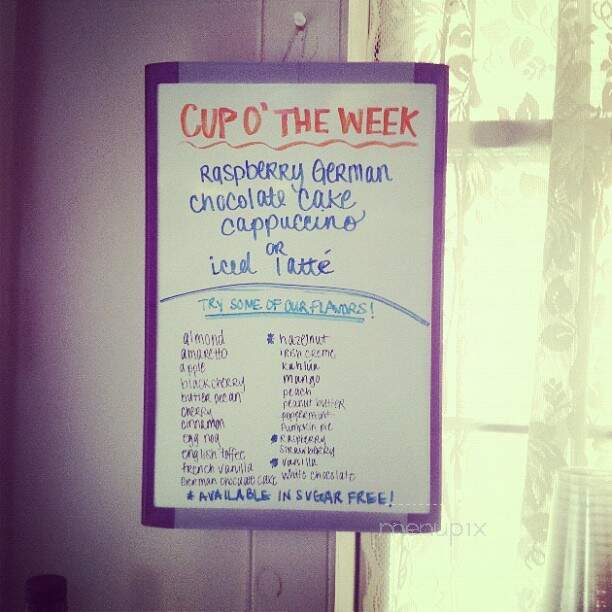 CUP O' THE WEEK
RASPBERRY GERMAN
chocolate cake
cappuccino
OR
iced latté
TRY SOME OF OUR FLAVORS!
almond
amaretto
apple
black cherry
butter pecan
cherry
cinnamon
egg nog
english toffee
french vanilla
German chocolate cake
* hazelnut
irish creme
kahlua
mango
peach
peanut butter
peppermint
Pumpkin pie
* Raspberry
strawberry
* vanilla
white chocolate
* AVAILABLE IN SUGAR FREE!
menupix